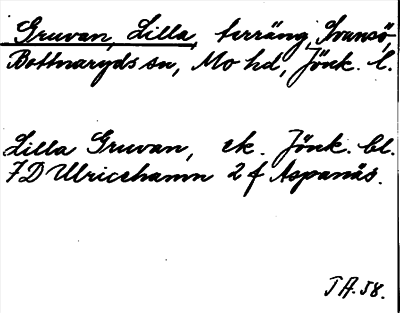 Gruvan, Lilla, terräng, Svansö,
Bottnaryds sn, Mo hd, Jönk. l.
Lilla Gruvan, ek. Jönk. bl.
7D Ulricehamn 2 f Aspanäs.
TA. 58.